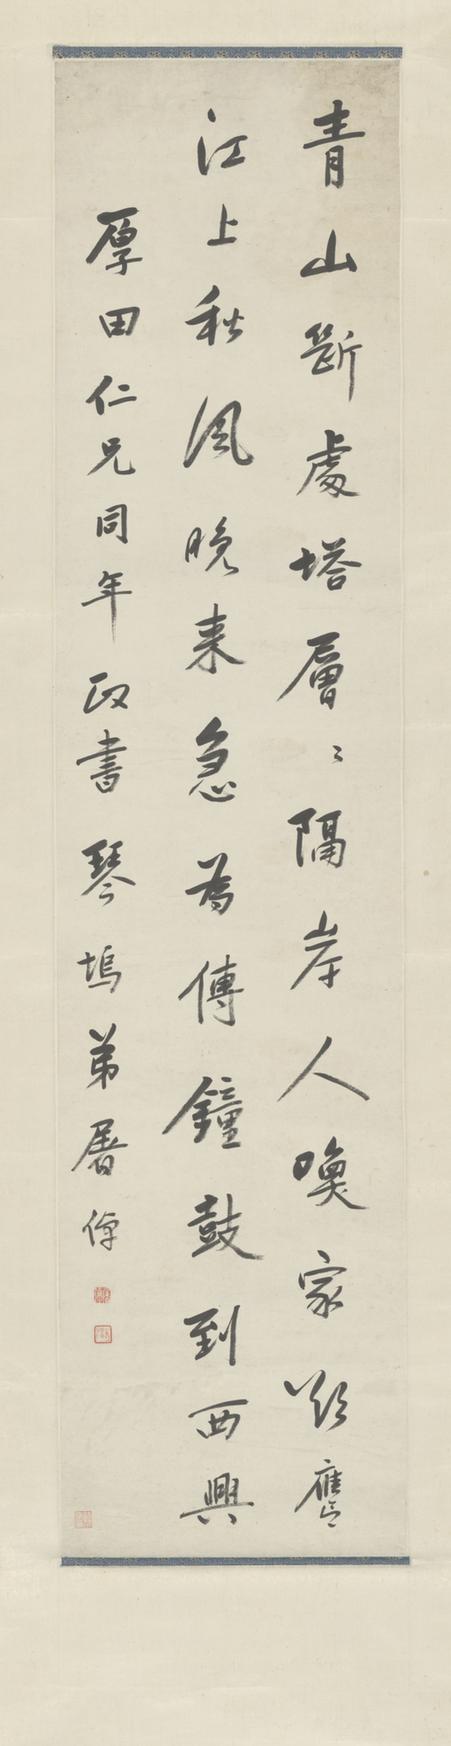 青山斷處塔層〻隔岸人喚家欲譍
江上秋風晚来急為傳鐘鼓到西興
厚田仁兄同年政書琴塢弟屠倬